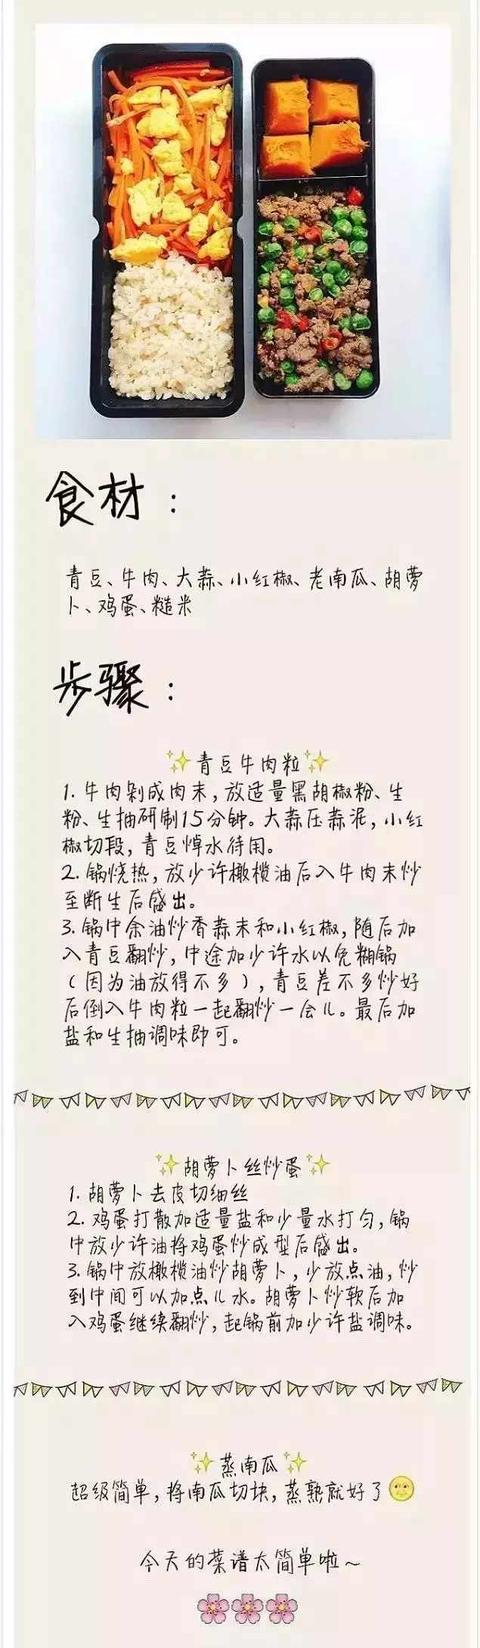 食材：
青豆、牛肉、大蒜、小红椒、老南瓜、胡萝
卜、鸡蛋、糙米
步骤：
✨青豆牛肉粒✨
1. 牛肉剁成肉末，放适量黑胡椒粉、生
粉、生抽研制15分钟。大蒜压蒜泥，小红
椒切段，青豆焯水待用。
2. 锅烧热，放少许橄榄油后入牛肉末炒
至断生后盛出。
3. 锅中余油炒香蒜末和小红椒，随后加
入青豆翻炒，中途加少许水以免糊锅
（因为油放得不多），青豆差不多炒好
后倒入牛肉粒一起翻炒一会儿。最后加
盐和生抽调味即可。
✨胡萝卜丝炒蛋✨
1. 胡萝卜去皮切细丝
2. 鸡蛋打散加适量盐和少量水打匀，锅
中放少许油将鸡蛋炒成型后盛出。
3. 锅中放橄榄油炒胡萝卜，少放点油，炒
到中间可以加点儿水。胡萝卜炒软后加
入鸡蛋继续翻炒，起锅前加少许盐调味。
✨蒸南瓜✨
超级简单，将南瓜切块，蒸熟就好了🌝
今天的菜谱太简单啦~
🌸🌸🌸